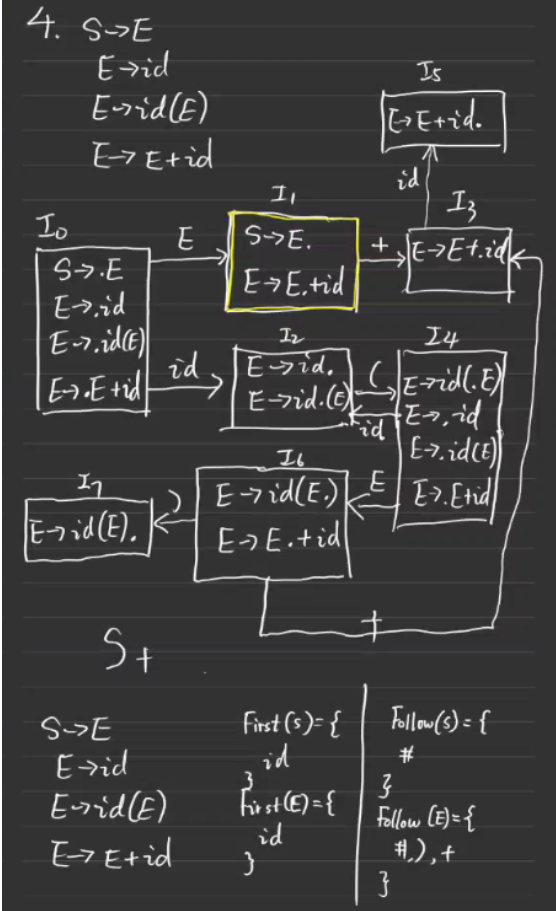 4. S->E
E->id
E->id(E)
E->E+id
I5
E->E+id.
id
I3
E->E+.id
I1
S->E.
E->E.+id
+
I0
E
S->.E
E->.id
E->.id(E)
E->.E+id
id
I2
E->id.
E->id.(E)
(
id
I4
E->id(.E)
E->.id
E->.id(E)
E->.E+id
E
I6
E->id(E.)
E->E.+id
)
I7
E->id(E).
+
S+
S->E
E->id
E->id(E)
E->E+id
First(s)={
id
}
First(E)={
id
}
Follow(s)={
#
}
Follow(E)={
#,),+
}